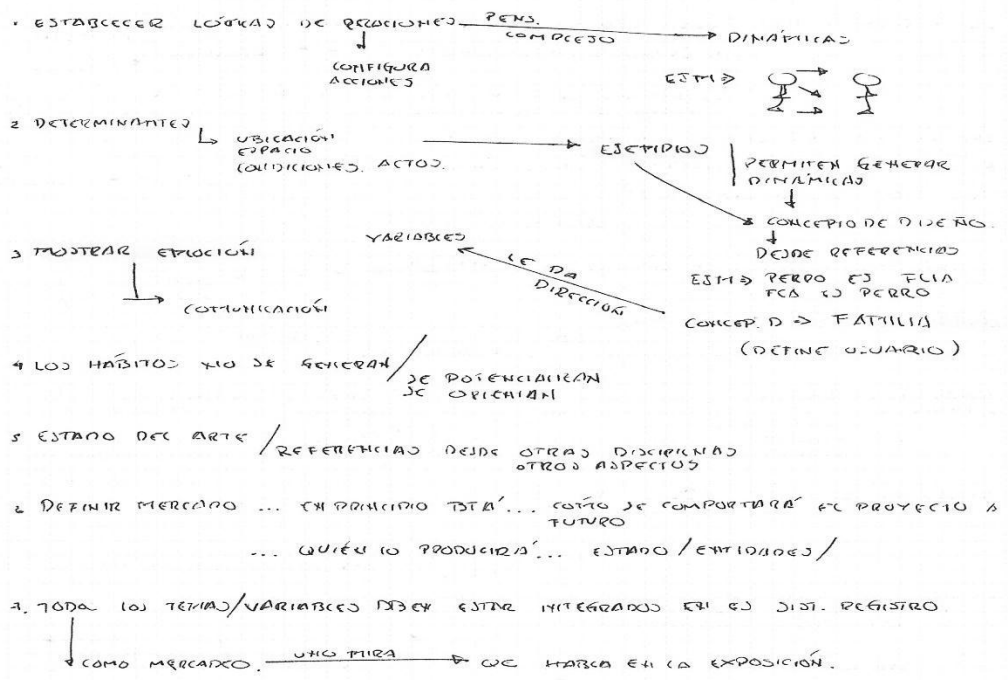 · ESTABLECER LÓGICAS DE RELACIONES PENS. COMPLEJO DINÁMICAS
CONFIGURA
ACCIONES
EJM ⇒
2 DETERMINANTES
UBICACIÓN
ESPACIO
CONDICIONES. ACTOS.
EJEMPLOS
PERMITEN GENERAR
DINÁMICAS
CONCEPTO DE DISEÑO.
DESDE REFERENCIAS
EJM ⇒ PERRO ES FLIA
FLIA ES PERRO
CONCEP. D ⇒ FAMILIA
(DEFINE USUARIO)
LE DA
DIRECCIÓN
VARIABLES
3 MOSTRAR EMOCIÓN
COMUNICACIÓN
4 LOS HÁBITOS NO SE GENERAN /
SE POTENCIALIZAN
SE
5 ESTADO DEL ARTE / REFERENCIAS DESDE OTRAS DISCIPLINAS
OTROS ASPECTOS
DEFINIR MERCADO ... EN PRINCIPIO ... COMO SE COMPORTARÁ EL PROYECTO A
FUTURO
... QUIÉN LO PRODUCIRÁ ... ESTADO / ENTIDADES /
7. TODA LOS TEMAS/VARIABLES DEBEN ESTAR INTEGRADOS EN SIST. REGISTRO
COMO MERCADEO. UNO MIRA HABLA EN LA EXPOSICIÓN.